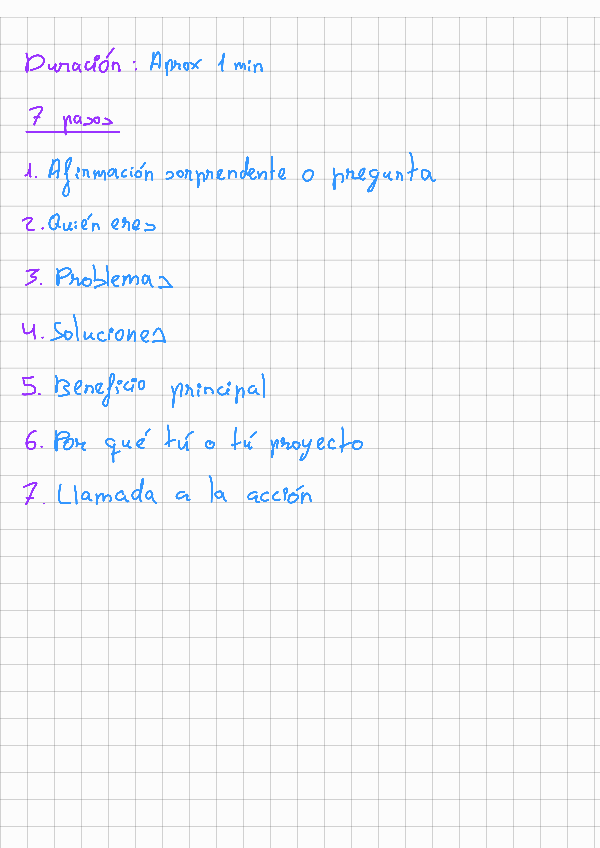 Duración: Aprox 1 min
7 pasos
1. Afirmación sorprendente o pregunta
2. Quién eres
3. Problemas
4. Soluciones
5. Beneficio principal
6. Por qué tú o tú proyecto
7. Llamada a la acción